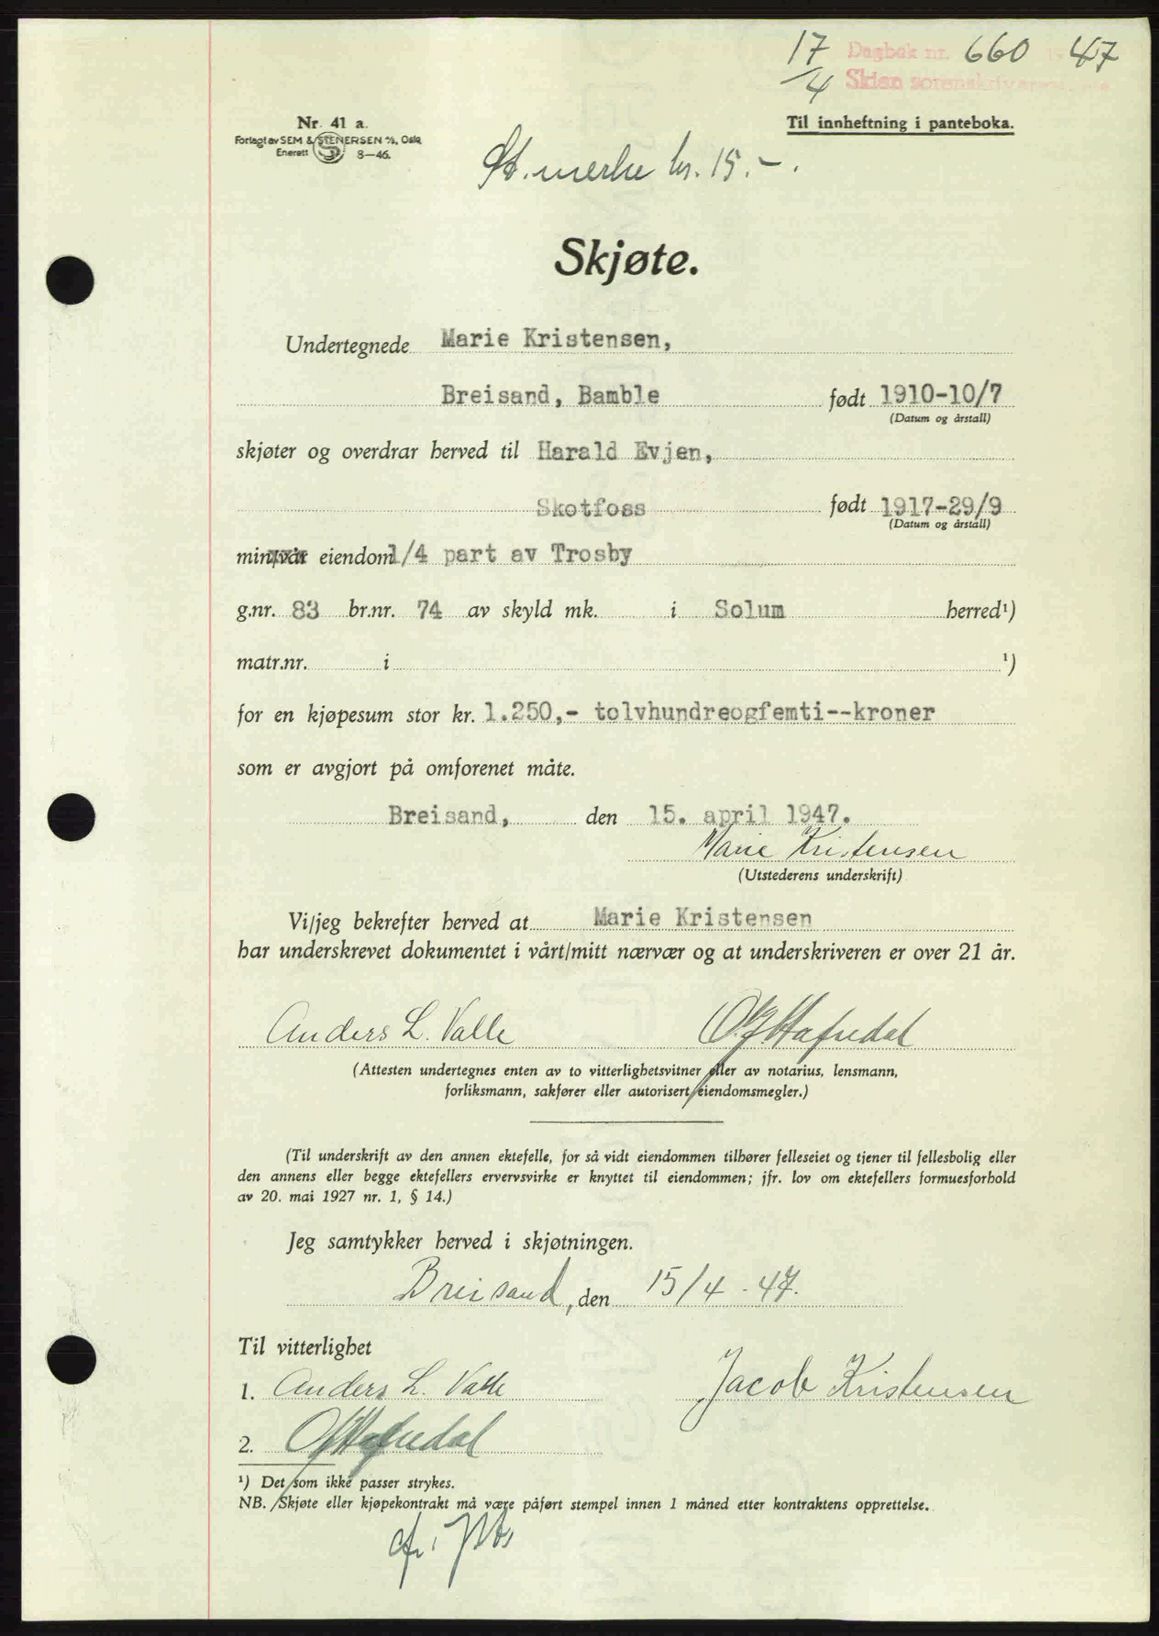 17/4 Dagbok nr. 660 1947
Skien sorenskriverembete
Nr. 41 a.
Forlagt av SEM & STENERSEN A/S, Oslo
Enerett 8—46.
Til innheftning i panteboka.
St. merke kr. 15.-.
Skjøte.
Undertegnede Marie Kristensen,
Breisand, Bamble født 1910-10/7
(Datum og årstall)
skjøter og overdrar herved til Harald Evjen,
Skotfoss født 1917-29/9
(Datum og årstall)
min/vår eiendom 1/4 part av Trosby
g.nr. 83 br.nr. 74 av skyld mk. i Solum herred¹)
matr.nr. i ¹)
for en kjøpesum stor kr. 1.250,- tolvhundreogfemti--kroner
som er avgjort på omforenet måte.
Breisand, den 15. april 1947.
Marie Kristensen
(Utstederens underskrift)
Vi/jeg bekrefter herved at Marie Kristensen
har underskrevet dokumentet i vårt/mitt nærvær og at underskriveren er over 21 år.
Anders L. Valle O.J. Hafredal
(Attesten undertegnes enten av to vitterlighetsvitner eller av notarius, lensmann,
forliksmann, sakfører eller autorisert eiendomsmegler.)
(Til underskrift av den annen ektefelle, for så vidt eiendommen tilhører felleseiet og tjener til fellesbolig eller
den annens eller begge ektefellers ervervsvirke er knyttet til eiendommen; jfr. lov om ektefellers formuesforhold
av 20. mai 1927 nr. 1, § 14.)
Jeg samtykker herved i skjøtningen.
Breisand, den 15/4-47.
Til vitterlighet
1. Anders L. Valle Jacob Kristensen
2. O.J. Hafredal
¹) Det som ikke passer strykes.
NB. Skjøte eller kjøpekontrakt må være påført stempel innen 1 måned etter kontraktens opprettelse.